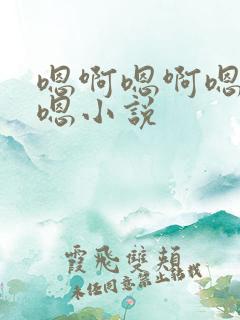 嗯啊嗯啊嗯
嗯小説
霞飛雙頰
未經同意禁止轉載